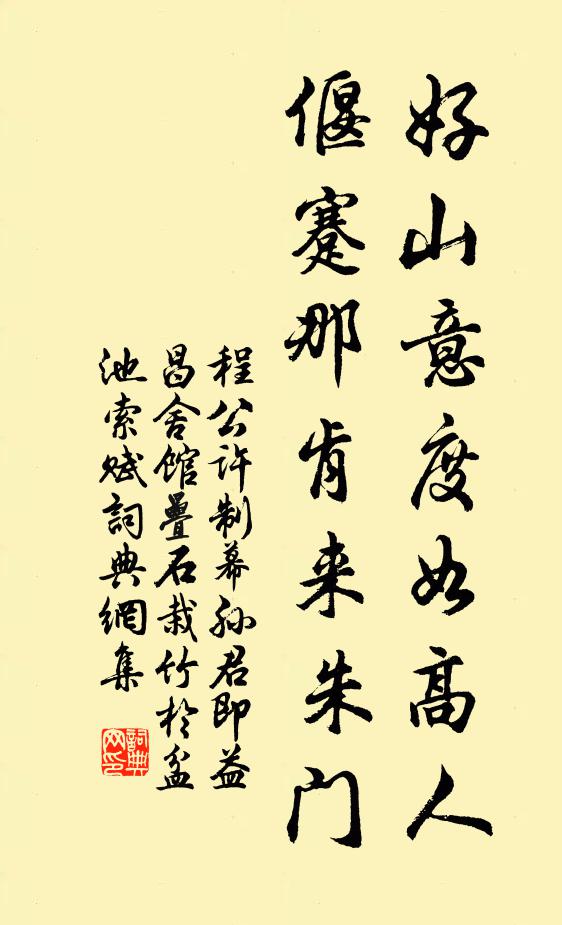 好山意度如高人
偃蹇那肯来朱门
程公许制幕孙君即益
昌舍馆叠石栽竹於盆
池索赋詞典網集
詞典
网印